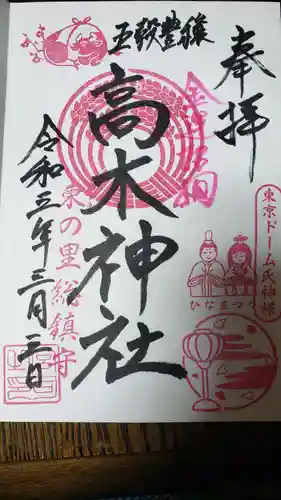 奉拝
五穀豊穣
高木神社
令和五年三月三日
東京ドーム氏神様
ひなまつり
総鎮守